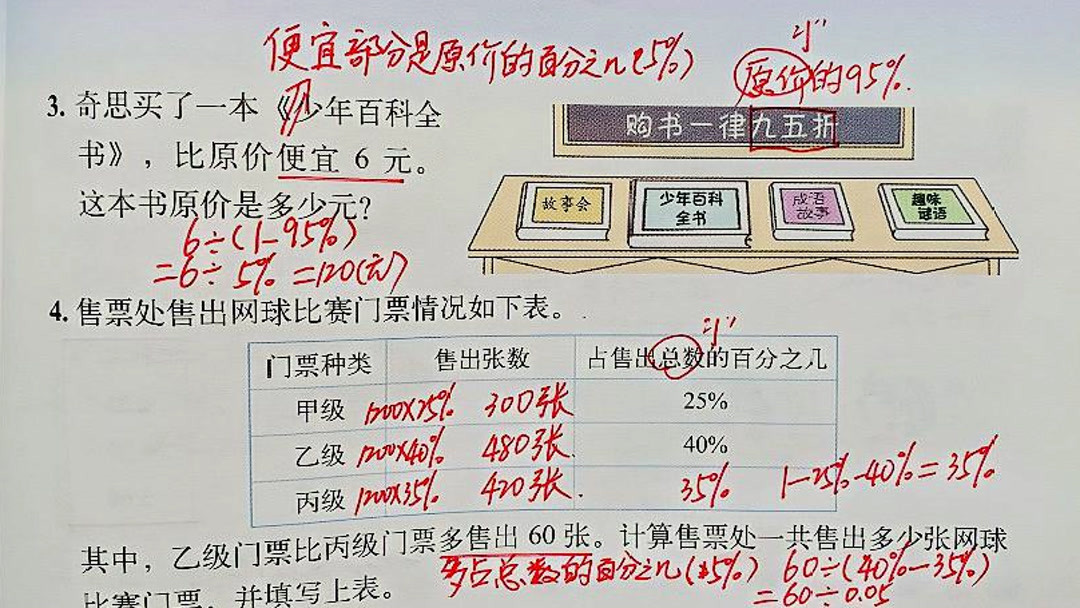 便宜部分是原价的百分之几(5%)
"1"
原价的95%.
3. 奇思买了一本《少年百科全
书》，比原价便宜 6 元。
这本书原价是多少元？
6÷(1-95%)
=6÷5%=120(元)
购书一律九五折
故事会
少年百科
全书
成语
故事
趣味
谜语
4. 售票处售出网球比赛门票情况如下表。
"1"
门票种类 售出张数 占售出总数的百分之几
甲级 1200×25% 300张 25%
乙级 1200×40% 480张 40%
丙级 1200×35% 420张. 35% 1-25%-40%=35%
其中，乙级门票比丙级门票多售出 60 张。计算售票处一共售出多少张网球
多占总数的百分之几(5%) 60÷(40%-35%)
比赛门票，并填写上表。 =60÷0.05